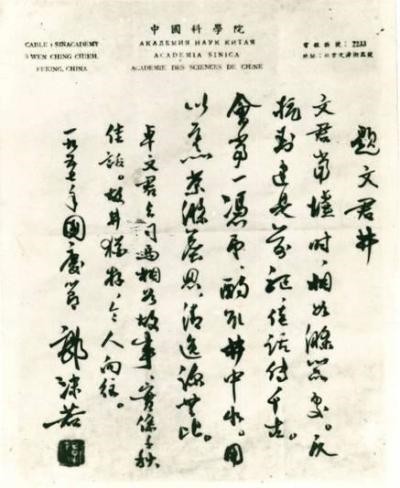 中國科學院
АКАДЕМИЯ НАУК КИТАЯ
ACADEMIA SINICA
ACADEMIE DES SCIENCES DE CHINE
CABLE : SINACADEMY
3 WEN CHING CHIEH,
PEKING, CHINA
電報掛號: 7233
地址: 北京文津街三號
題文君井
文君當壚時,相如滌器處。反
抗封建是前驱,佳話傳千古。
會當一憑弔,酌取井中水。用
以烹茶滌塵思,清逸涼無比。
卓文君与司馬相如故事實係千秋
佳話。故井猶存,令人向往。
一九五七年國慶節 郭沫若